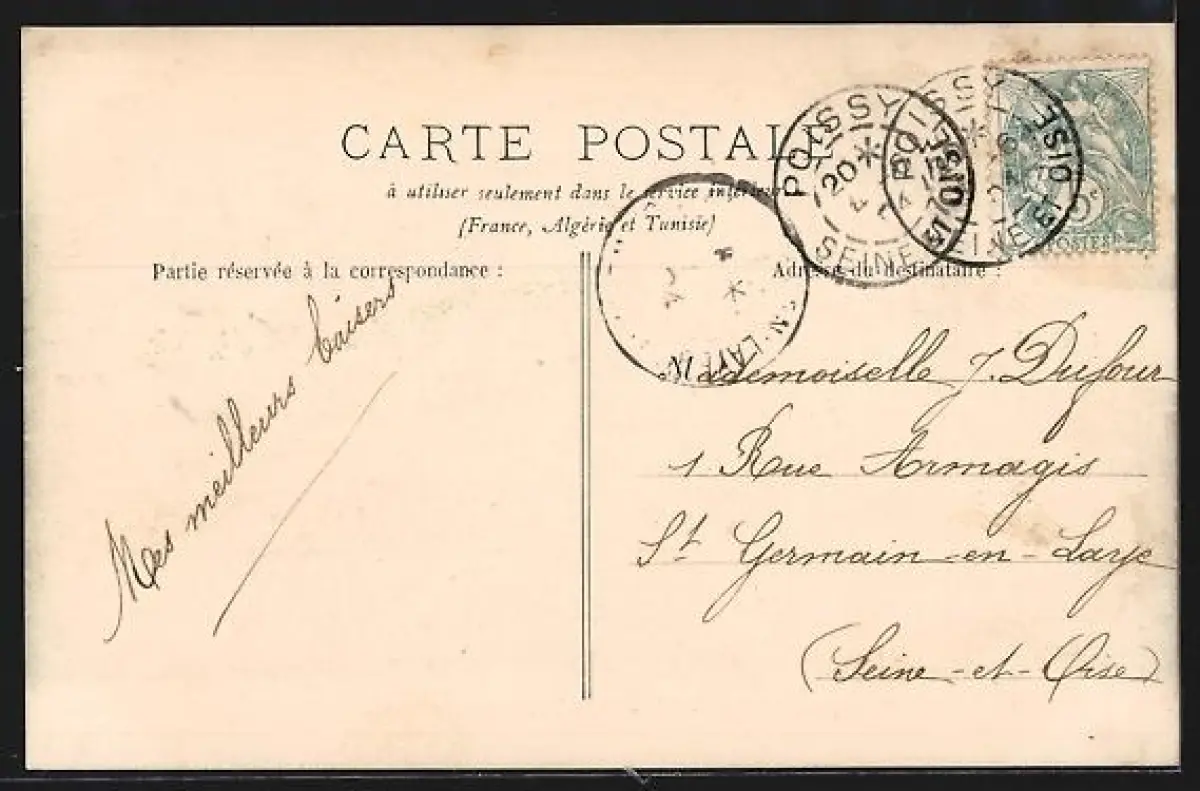 CARTE POSTALE
à utiliser seulement dans le service intérieur
(France, Algérie et Tunisie)
Partie réservée à la correspondance :
Mes meilleurs baisers
Adresse du destinataire :
Mademoiselle J. Dufour
1 Rue Armagis
St Germain-en-Laye
(Seine-et-Oise)
POISSY
20
SEINE
POISSY
SEINE
OISE
POSTES
N-LAYE